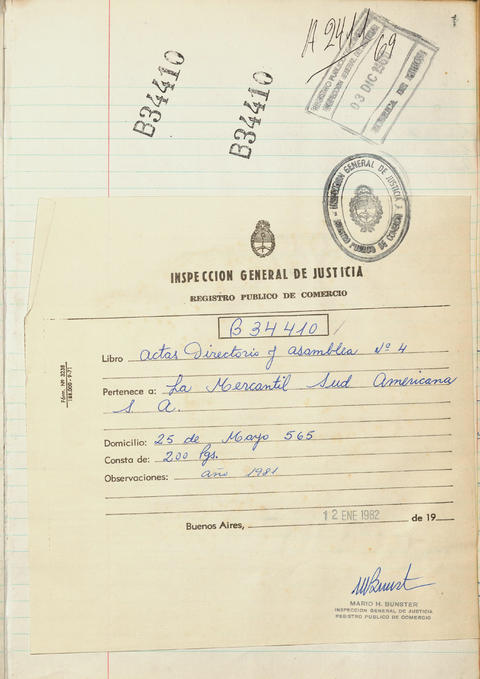 A 2411/69
REGISTRO PUBLICO
03 DIC 196
B34410
B34410
INSPECCION GENERAL DE JUSTICIA
REGISTRO PUBLICO DE COMERCIO
INSPECCION GENERAL DE JUSTICIA
REGISTRO PUBLICO DE COMERCIO
B 34410
Libro Actas Directorio y asamblea Nº 4
Pertenece a: La Mercantil Sud Americana
S A.
Domicilio: 25 de Mayo 565
Consta de: 200 Pgs.
Observaciones: año 1981
Buenos Aires, 12 ENE 1982 de 19
Fórm. Nº 3238
MBunst
MARIO H. BUNSTER
INSPECCION GENERAL DE JUSTICIA
REGISTRO PUBLICO DE COMERCIO